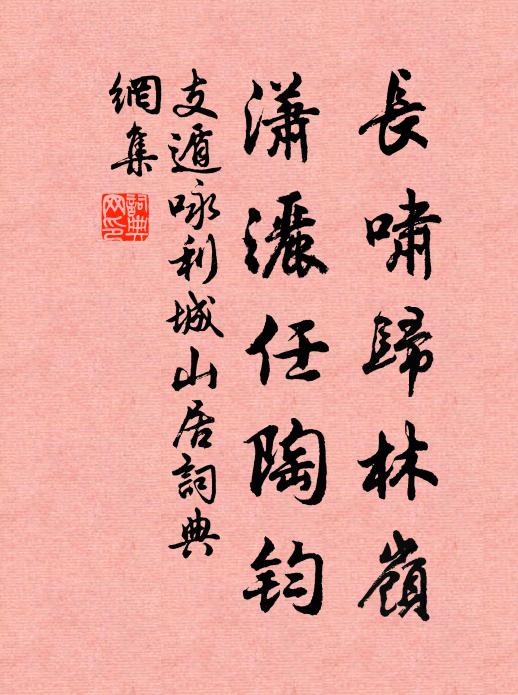 長嘯歸林嶺
瀟灑任陶鈞
支遁咏利城山居詞典
網集
詞典網印